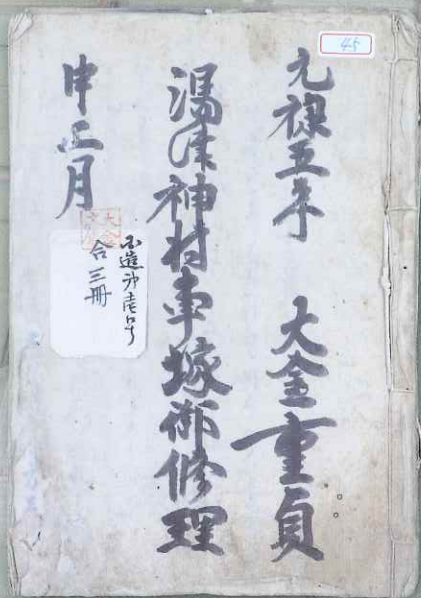 45
元禄五年 大金重貞
湯津神村車塚御修理
申正月
合三冊